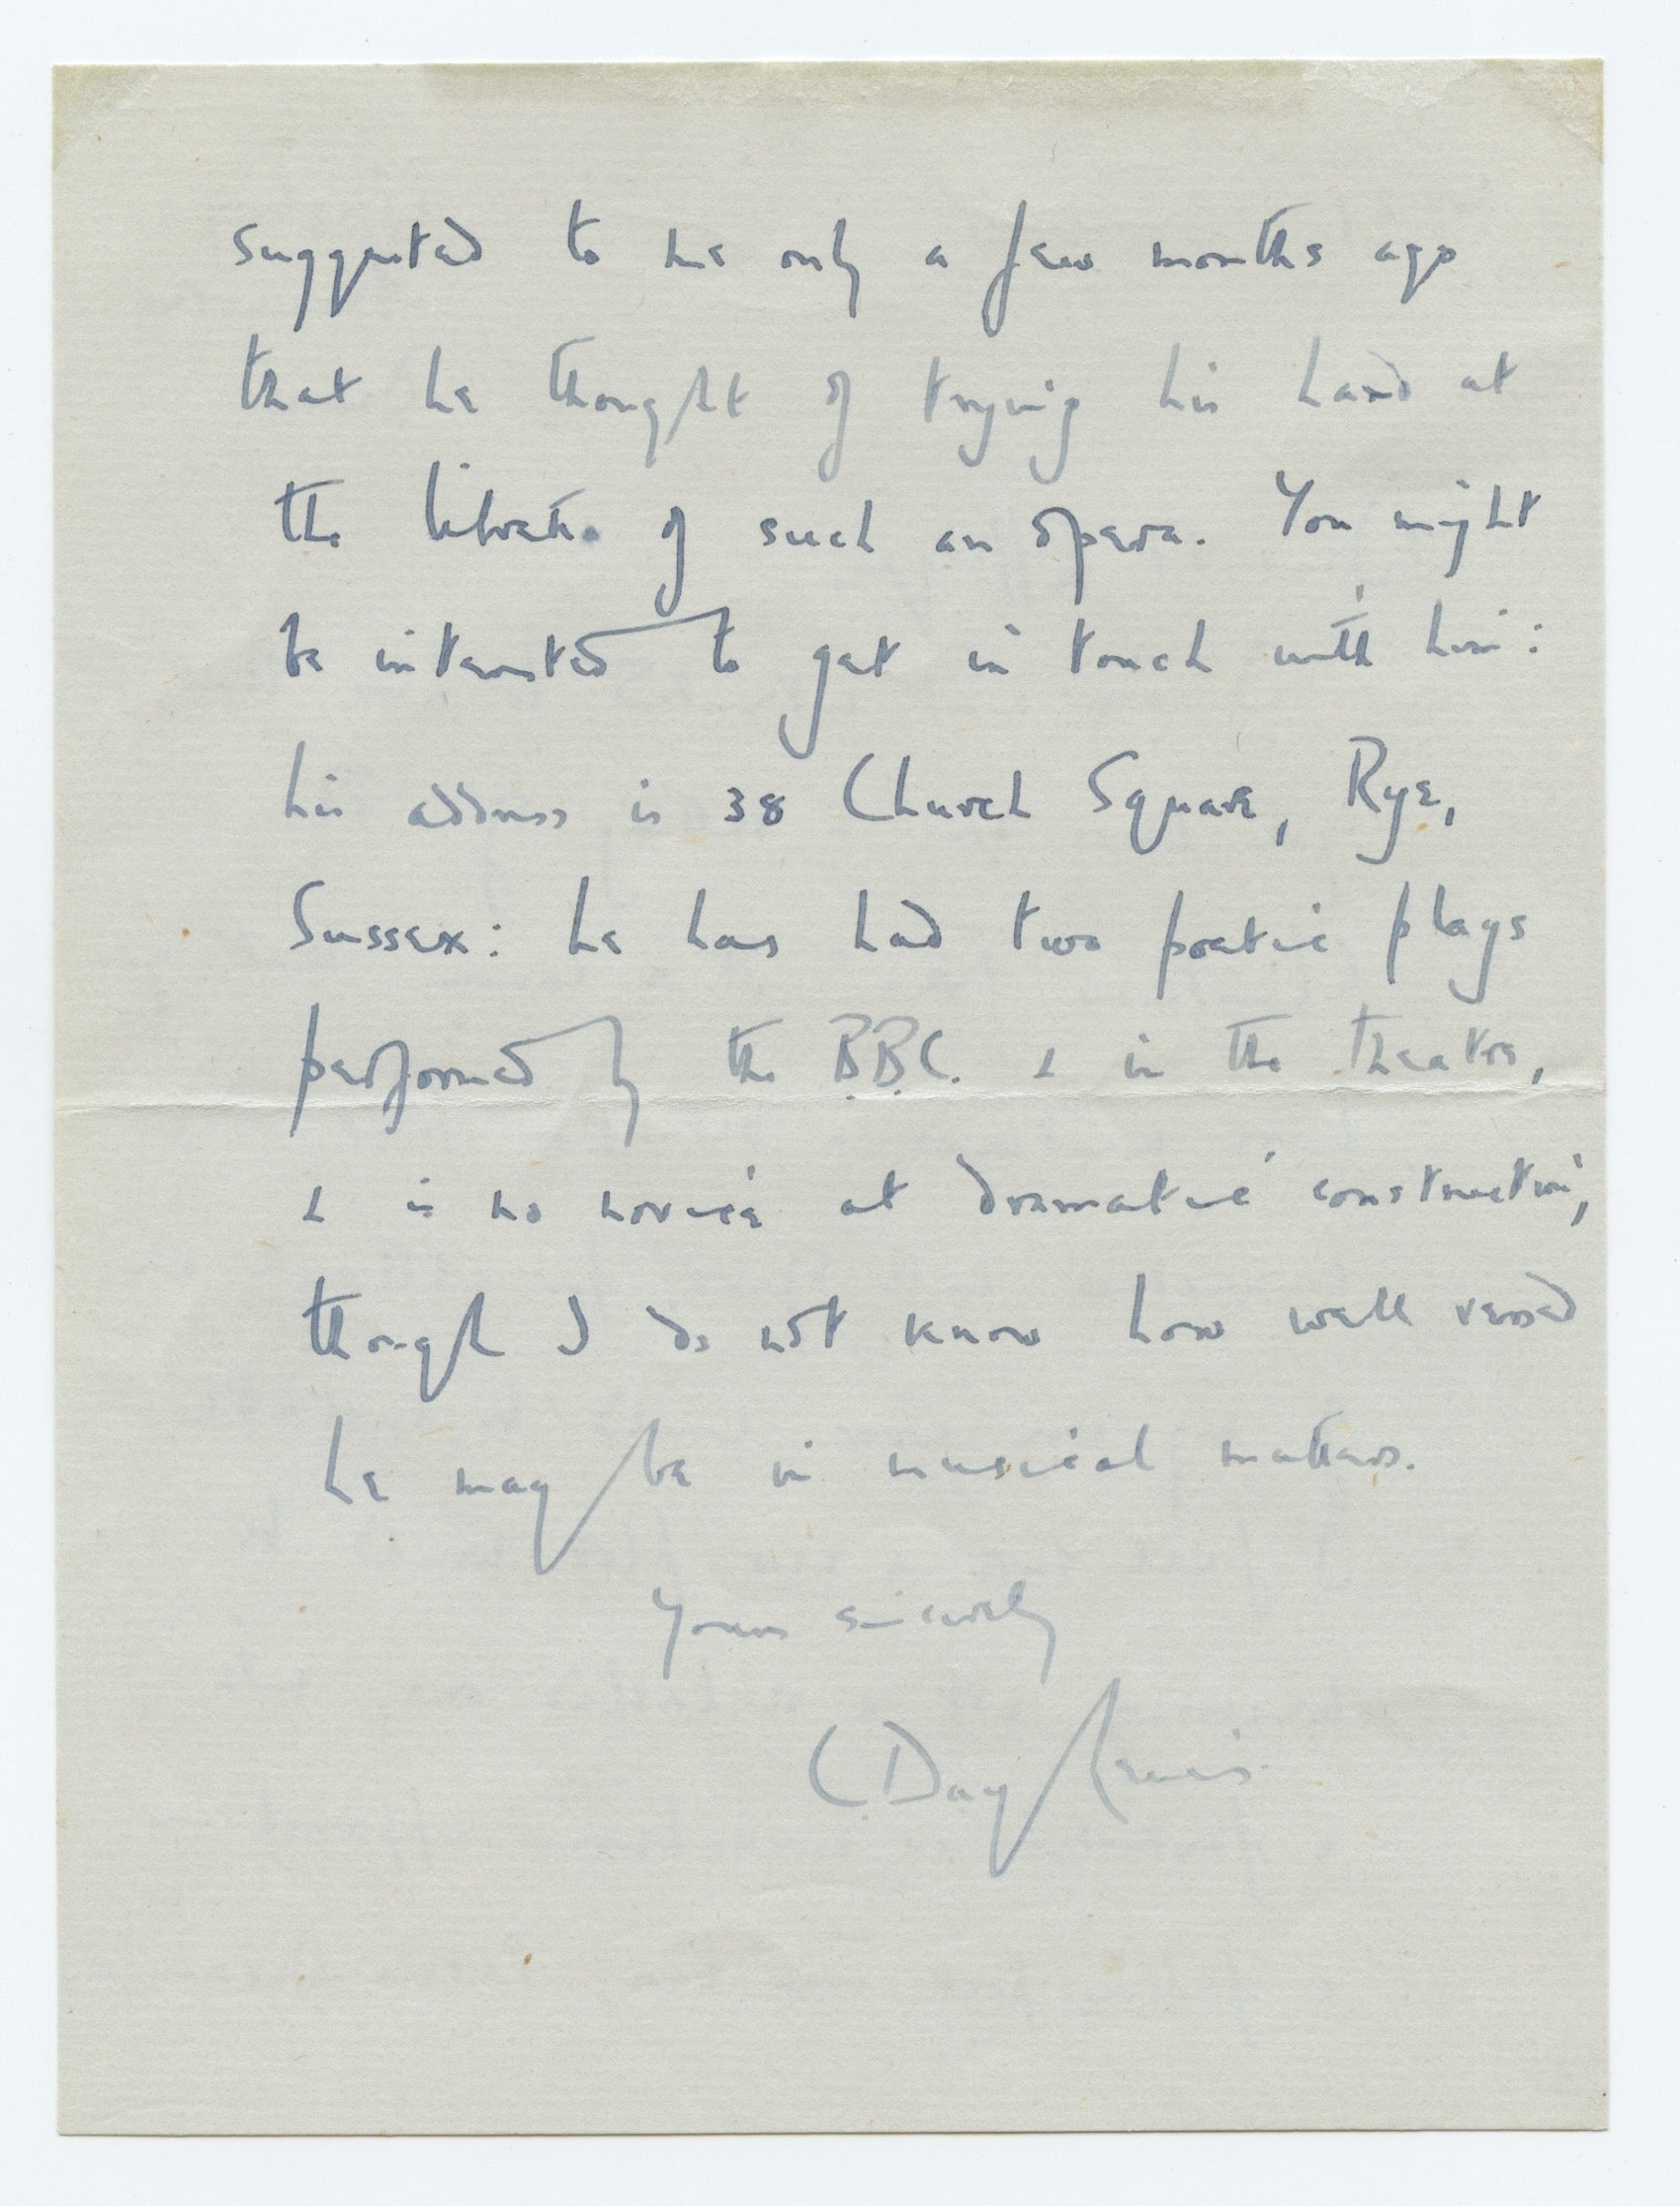 suggested to me only a few months ago
that he thought of trying his hand at
the libretto of such an opera. You might
be interested to get in touch with him:
his address is 38 Church Square, Rye,
Sussex: he has had two poetic plays
performed by the B.B.C. & in the theatre,
& is no novice at dramatic construction,
though I do not know how well versed
he may be in musical matters.
Yours sincerely
C. Day Lewis.